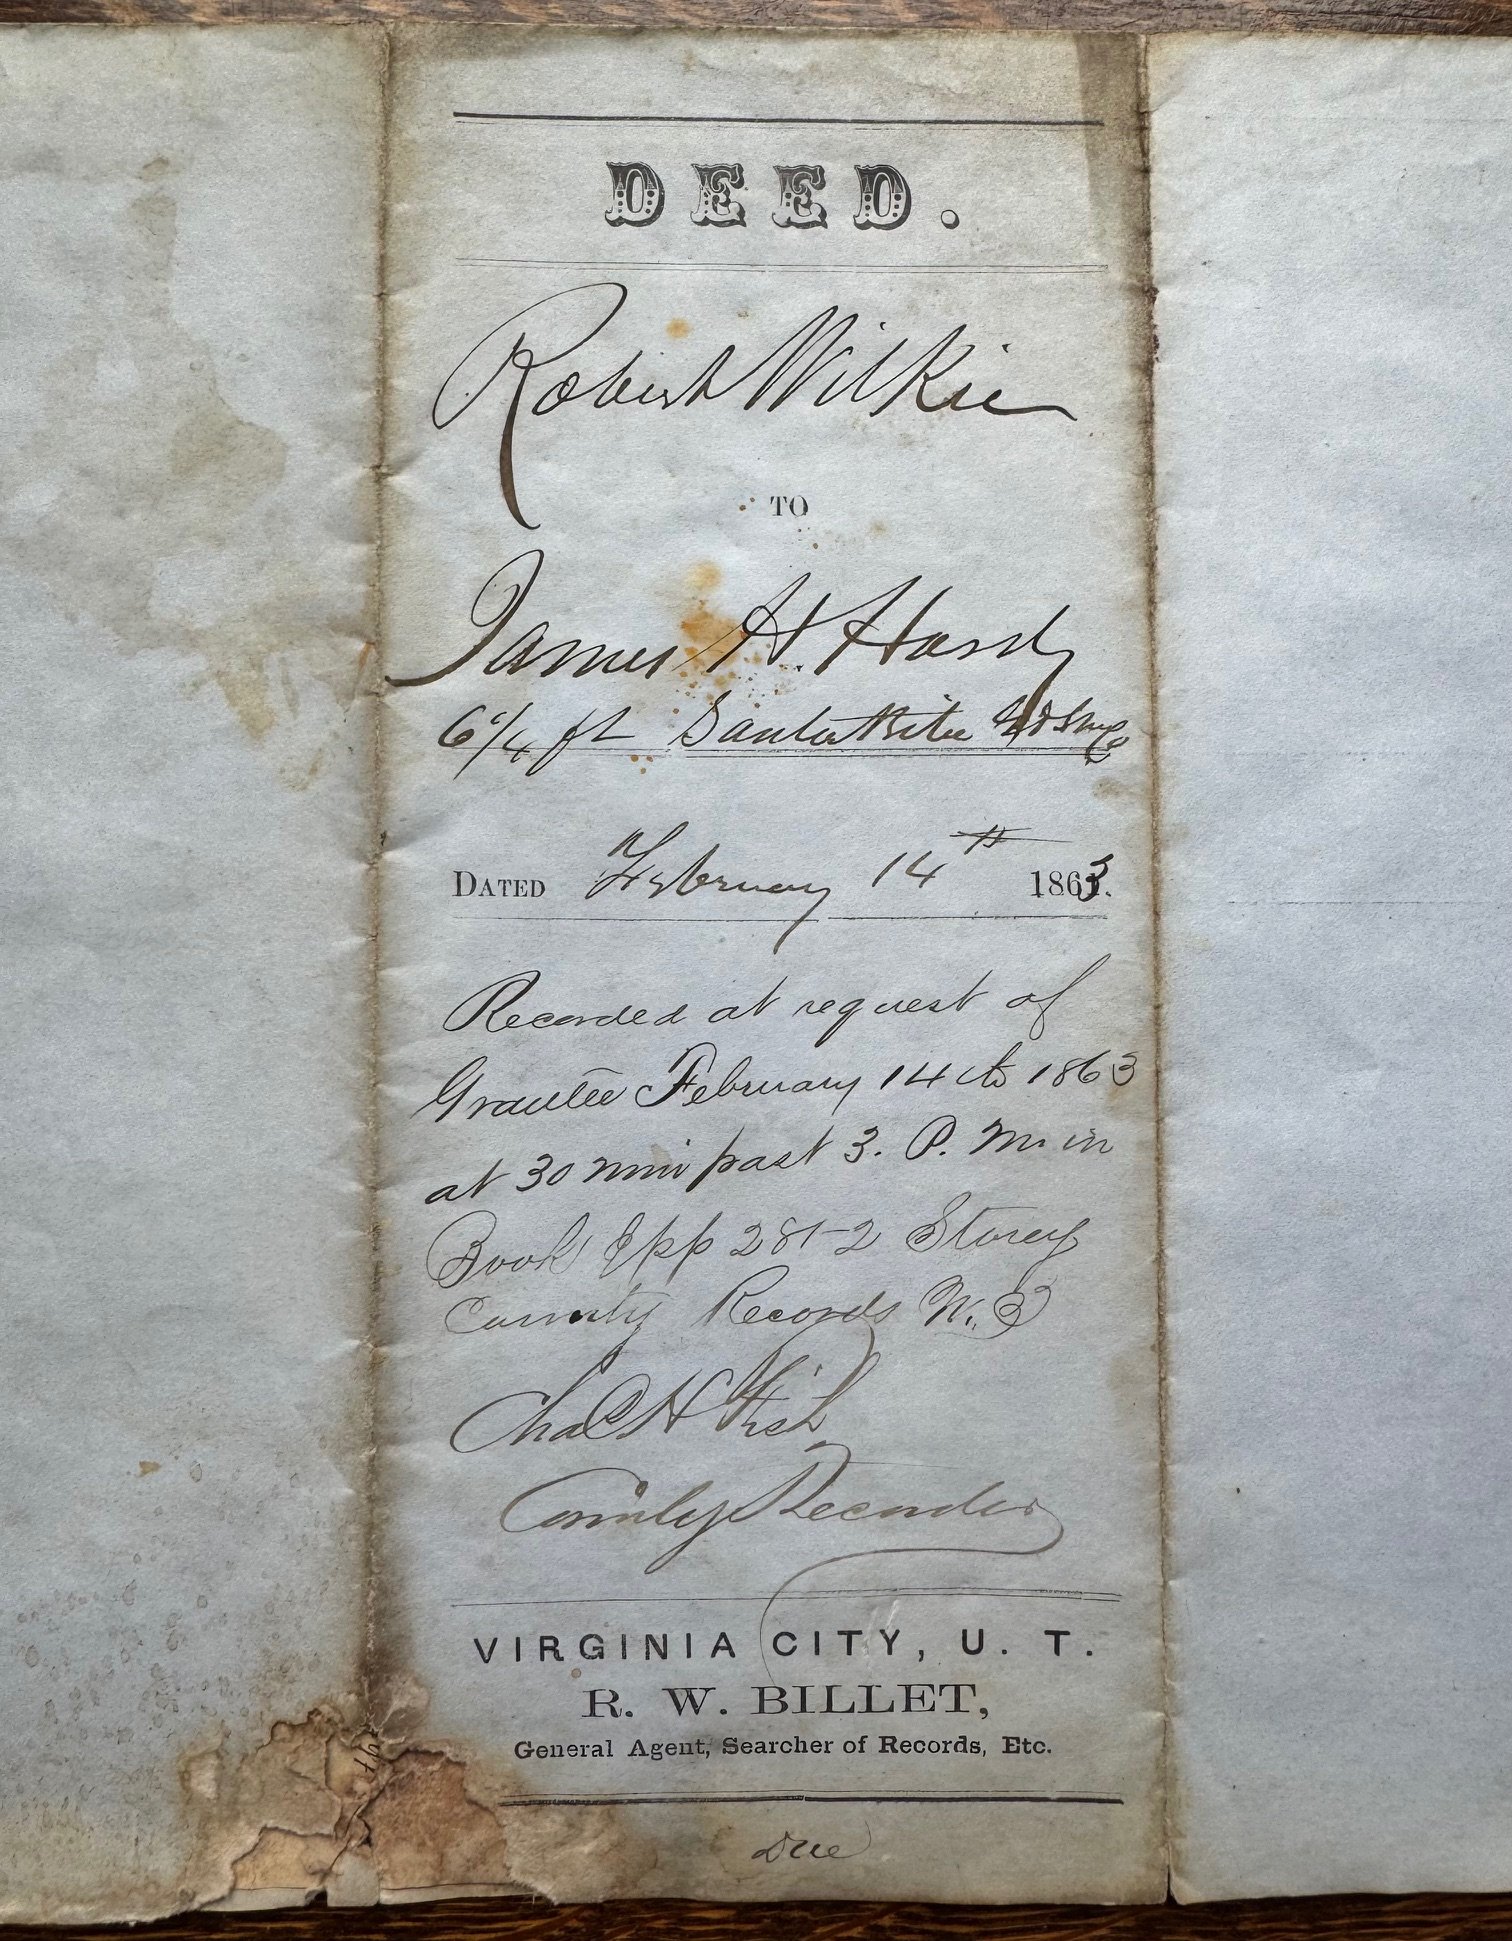 DEED.
Robert Wilkie
TO
James H. Hardy
6 1/4 ft Santa Rita G & S M Co
DATED February 14th 1863.
Recorded at request of
Grantee February 14th 1863
at 30 min past 3. P. M. in
Book pp 281-2 Storey
County Records N. T
Chas H Fish
County Recorder
VIRGINIA CITY, U. T.
R. W. BILLET,
General Agent, Searcher of Records, Etc.
Due